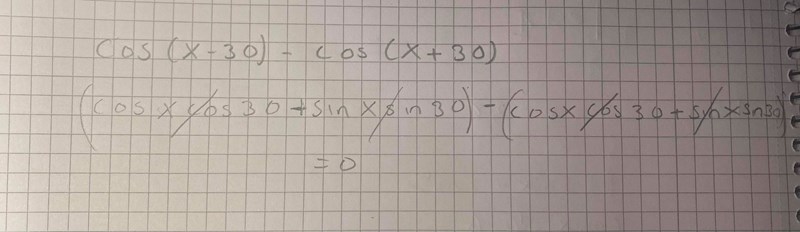 cos (x-30) - cos (x+30)
(cos x cos 30 + sin x sin 30) - (cosx cos 30 + sin x sn 30)
= 0